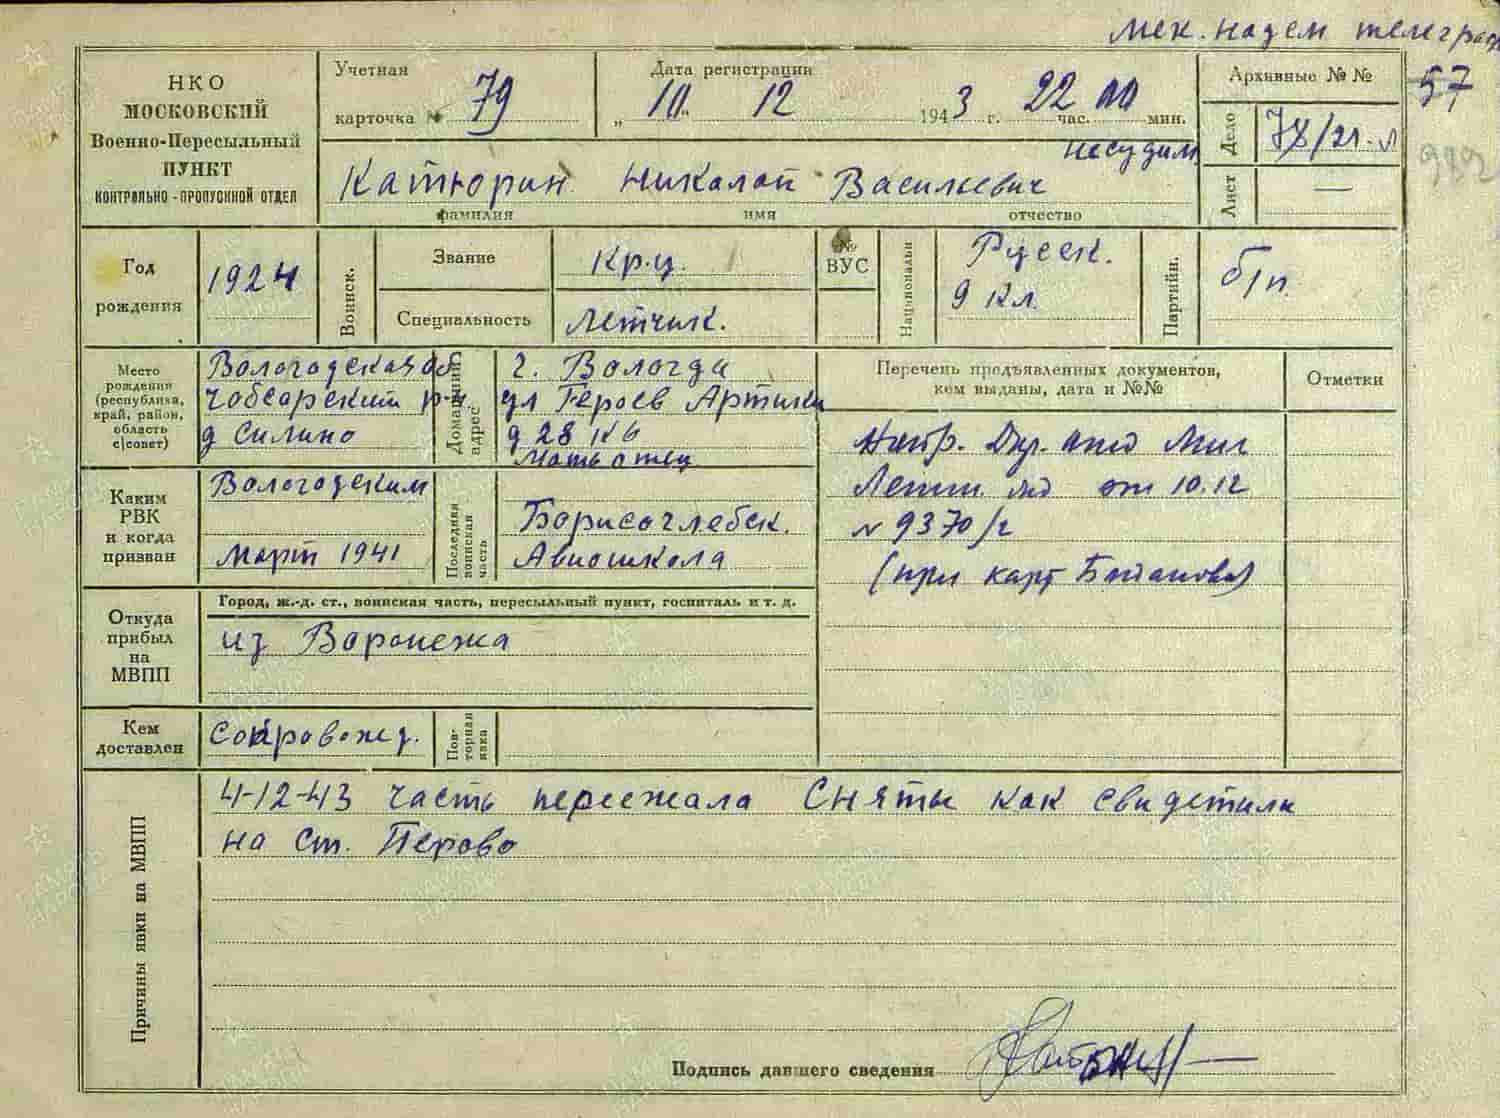 мек. надем телеграф
НКО
МОСКОВСКИЙ
Военно-Пересыльный
ПУНКТ
КОНТРОЛЬНО-ПРОПУСКНОЙ ОТДЕЛ
Учетная
карточка № 79
Дата регистрации
„ 10. 12 1943 г. 22 час. 00 мин.
Архивные № №
57
Дело 78/21. л
Лист —
982
несудим
Катюрин Николай Васильевич
фамилия имя отчество
Год
рождения
1924
Воинск.
Звание
кр-ц.
Специальность
Летчик.
№
ВУС
Национальн
Русск.
9 кл.
Партийн.
б/п.
Место
рождения
(республика,
край, район,
область
с|совет)
Вологодская обл
Чобсарский р-н.
д Силино
Домашний
адрес
г. Вологда
ул Героев Артилл
д 28 к 6
Мать отец
Перечень предъявленных документов,
кем выданы, дата и №№
Отметки
Напр.
от 10.12
N 9370/г
(при карт Богданова)
Каким
РВК
и когда
призван
Вологодским
Март 1941
Последняя
воинская
часть
Борисоглебск.
Авиошкола
Откуда
прибыл
на
МВПП
Город, ж.-д. ст., воинская часть, пересыльный пункт, госпиталь и т. д.
из Воронежа
Кем
доставлен
Сопровожд.
Пов-
торная
явка
Причины явки на МВПП
4-12-43 часть переежала Сняты как свидетили
на ст. Перово
Подпись давшего сведения